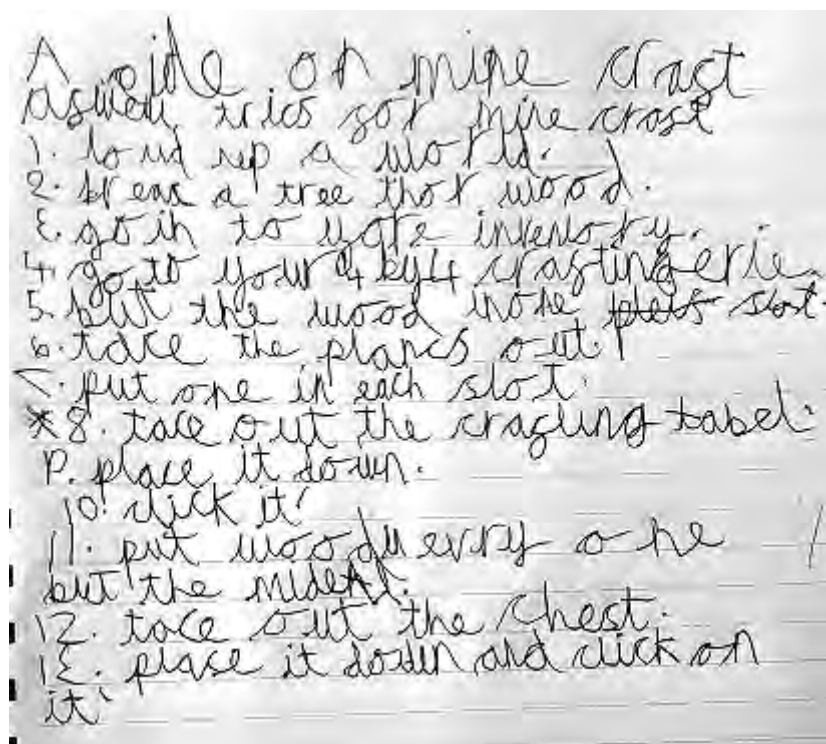 A gide on mine craft
aswell trics for mine craft
1. loud up a world.
2. break a tree thor wood.
3. go in to yore invenory.
4. go to your 4 by 4 crafting erie.
5. but the wood in one slot.
6. take the plancs out.
7. put one in each slot.
*8. tace out the crafting tabel.
9. place it down.
10. click it!
11. put wood evrry one
but the midel.
12. tace out the chest.
13. place it down and click on
it!